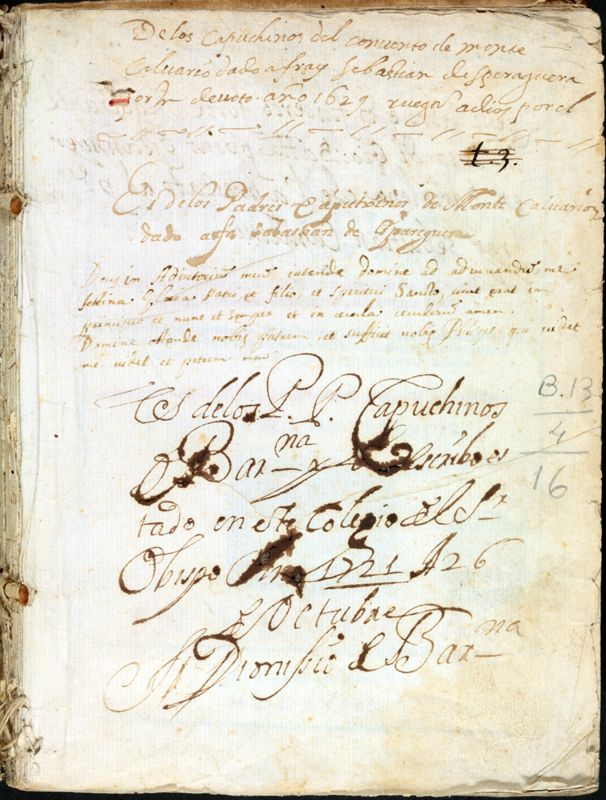 De los Capuchinos del convento de monte
Calvario dado a fray Sebastian de Speraguera
por devoto año 1629 ruega a dios por el
t. 3.
Es de los Padres Caputxinos de Monte Calvario
dado a fr Sabastian de
Deus in Adiutorium meum intende domine ad adiuvandum me
festina Gloria patri et filio, et spiritui Sancto, sicut erat in
principio et nunc et semper et in secula seculorum amen.
Domine ostende nobis patrem et sufficit nobis qui videt
me videt et patrem meum
Es de los P. P. Capuchinos
de Barna y escribo es
tado en este Colegio del Sr
Obispo 1721 A 26
de Octubre
Fr Dionissio de Barna
B.13
4
16